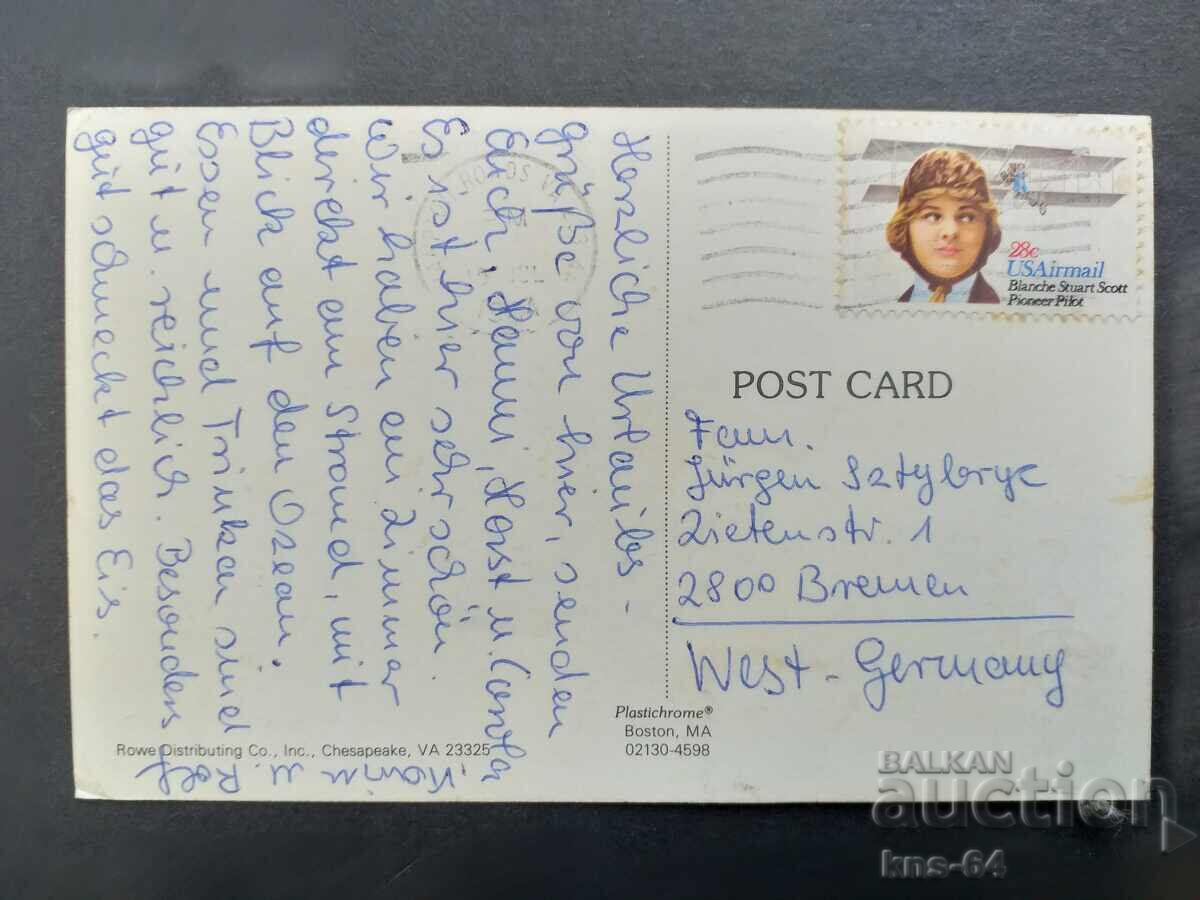 Herzliche Urlaubs -
grüße von hier, senden
Euch, Hanni, Horst u.
Es ist hier sehr schön.
Wir haben ein Zimmer
derekt am Strand, mit
Blick auf den Ozean.
Essen und Trinken sind
gut u. reichlich. Besonders
gut schmeckt das Eis.
Karin u.
28c
USAirmail
Blanche Stuart Scott
Pioneer Pilot
POST CARD
Fam.
Jürgen Sztybryc
Zietenstr. 1
2800 Bremen
West - Germany
Plastichrome®
Boston, MA
02130-4598
Rowe Distributing Co., Inc., Chesapeake, VA 23325
BALKAN
auction
kns-64